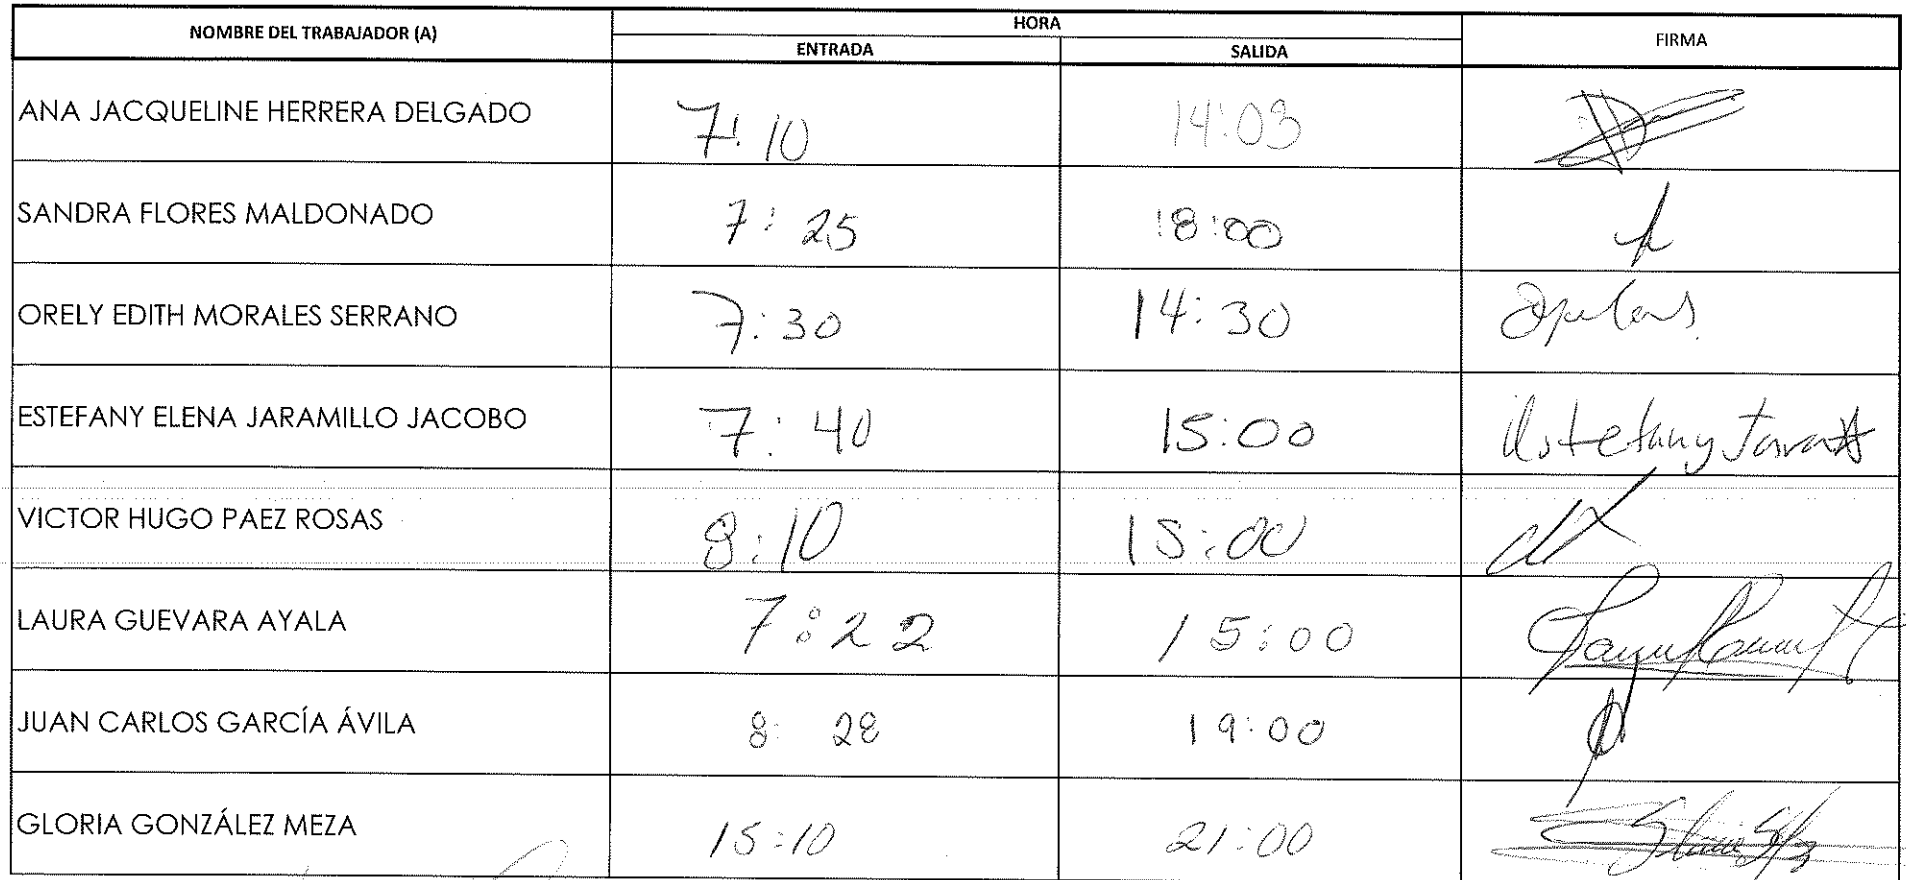 NOMBRE DEL TRABAJADOR (A) HORA FIRMA
ENTRADA SALIDA
ANA JACQUELINE HERRERA DELGADO 7:10 14:03
SANDRA FLORES MALDONADO 7:25 18:00
ORELY EDITH MORALES SERRANO 7:30 14:30
ESTEFANY ELENA JARAMILLO JACOBO 7:40 15:00
VICTOR HUGO PAEZ ROSAS 8:10 15:00
LAURA GUEVARA AYALA 7:22 15:00
JUAN CARLOS GARCÍA ÁVILA 8:28 19:00
GLORIA GONZÁLEZ MEZA 15:10 21:00